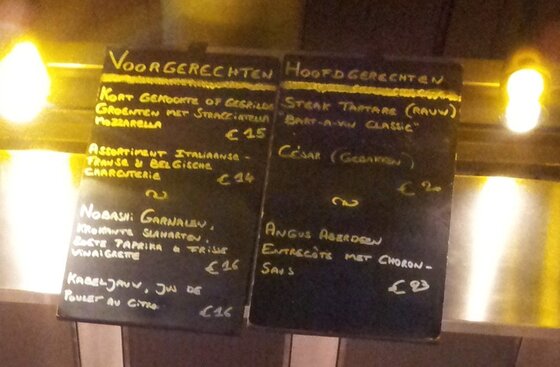 VOORGERECHTEN
KORT GEKOOKTE OF GEGRILDE
GROENTEN MET STRACCIATELLA
MOZZARELLA
€ 15
ASSORTIMENT ITALIAANSE-
FRANSE & BELGISCHE
CHARCUTERIE
€ 14
NOBASHI GARNALEN,
KROKANTE SLAHARTEN,
ZOETE PAPRIKA & FRISSE
VINAIGRETTE
€ 16
KABELJAUW, JUS DE
POULET AU CITRO
€ 16
HOOFDGERECHTEN
STEAK TARTARE (RAUW)
BART-A-VIN CLASSIC
CÉSAR (GEBAKKEN)
€ 20
ANGUS ABERDEEN
ENTRECÔTE MET CHORON-
SAUS
€ 23